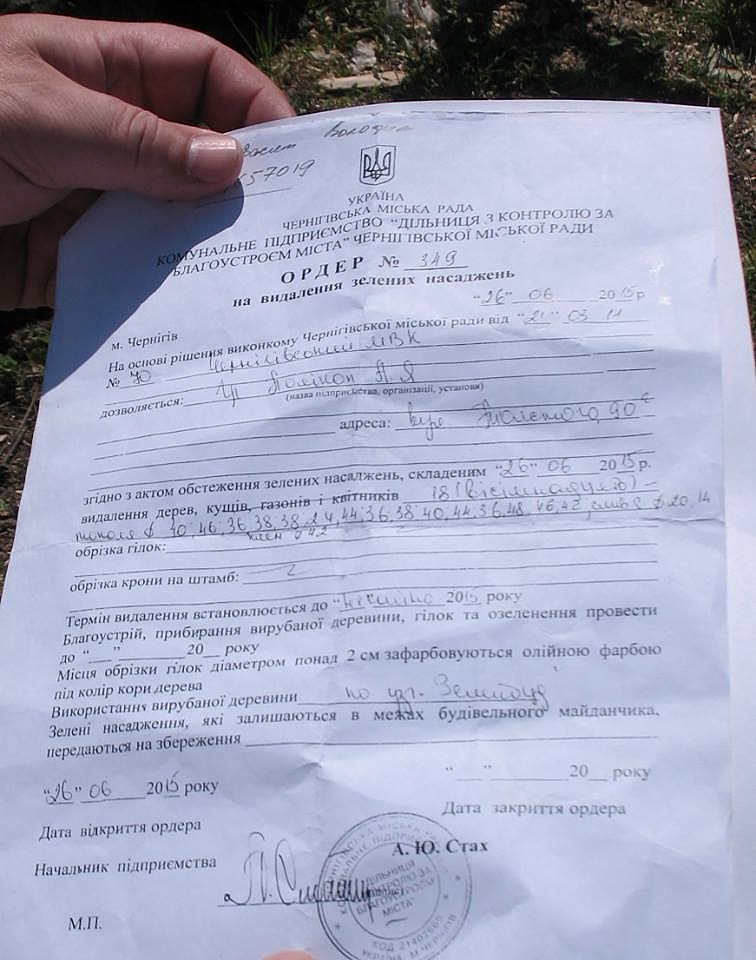 657019
УКРАЇНА
ЧЕРНІГІВСЬКА МІСЬКА РАДА
КОМУНАЛЬНЕ ПІДПРИЄМСТВО "ДІЛЬНИЦЯ З КОНТРОЛЮ ЗА
БЛАГОУСТРОЄМ МІСТА" ЧЕРНІГІВСЬКОЇ МІСЬКОЇ РАДИ
ОРДЕР № 349
на видалення зелених насаджень
"26" 06 2015р
м. Чернігів
На основі рішення виконкому Чернігівської міської ради від "21" 03 11
№ 70 Чернігівський МВК
дозволяється: гр
(назва підприємства, організації, установа)
адреса: вул.
згідно з актом обстеження зелених насаджень, складеним "26" 06 2015р.
видалення дерев, кущів, газонів і квітників 18 (вісімнадцять) –
тополя d 40, 46, 36, 38, 38, 24, 44, 36, 38, 40, 44, 36, 48, 46, 42, слива d 20, 14
клен d 42
обрізка гілок:
обрізка крони на штамб:
Термін видалення встановлюється до " 2015 року
Благоустрій, прибирання вирубаної деревини, гілок та озеленення провести
до "___"________20__ року
Місця обрізки гілок діаметром понад 2 см зафарбовуються олійною фарбою
під колір кори дерева
Використання вирубаної деревини по узг. Зеленбуд
Зелені насадження, які залишаються в межах будівельного майданчика,
передаються на збереження
"___"________20__ року
"26" 06 2015 року
Дата закриття ордера
Дата відкриття ордера
Начальник підприємства А. Ю. Стах
М.П.
ЧЕРНІГІВСЬКА МІСЬКА РАДА
КОМУНАЛЬНЕ ПІДПРИЄМСТВО
"ДІЛЬНИЦЯ
З КОНТРОЛЮ ЗА
БЛАГОУСТРОЄМ
МІСТА"
КОД 21402665
УКРАЇНА М.ЧЕРНІГІВ